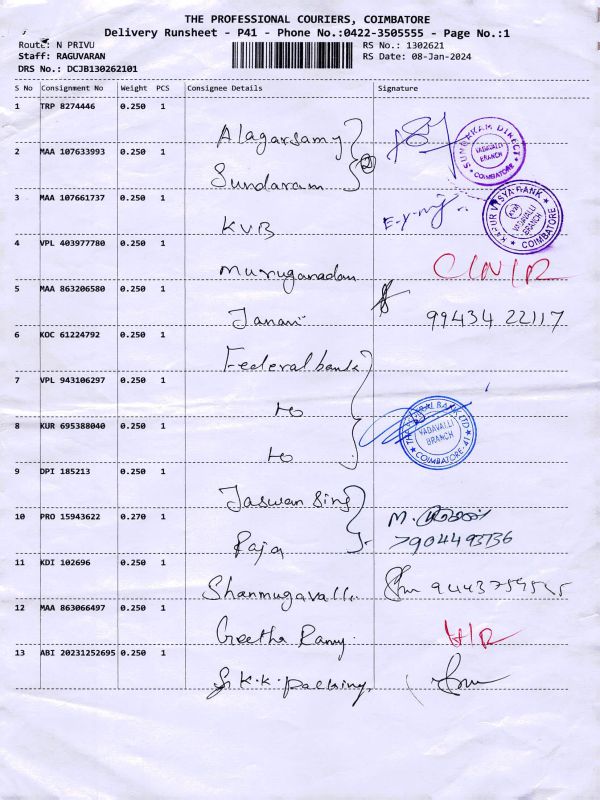 THE PROFESSIONAL COURIERS, COIMBATORE
Delivery Runsheet - P41 - Phone No.:0422-3505555 - Page No.:1
Route: N PRIVU RS No.: 1302621
Staff: RAGUVARAN RS Date: 08-Jan-2024
DRS No.: DCJB130262101
S No Consignment No Weight PCS Consignee Details Signature
1 TRP 8274446 0.250 1
Alagarsamy
2 MAA 107633993 0.250 1
Sundaram
SUNDARAM DIRECT
VADAVALLI BRANCH
COIMBATORE
3 MAA 107661737 0.250 1
KVB
KARUR VYSYA BANK
KVB
VADAVALLI BRANCH
COIMBATORE
4 VPL 403977780 0.250 1
Muruganadam
5 MAA 863206580 0.250 1
Janani 99434 22117
6 KOC 61224792 0.250 1
Federal bank
7 VPL 943106297 0.250 1
8 KUR 695388040 0.250 1
VADAVALLI BRANCH
COIMBATORE
9 DPI 185213 0.250 1
Jaswan Sing
10 PRO 15943622 0.270 1
Raja
11 KDI 102696 0.250 1
12 MAA 863066497 0.250 1
Geetha Ramy
13 ABI 20231252695 0.250 1
Sri K.K. packing